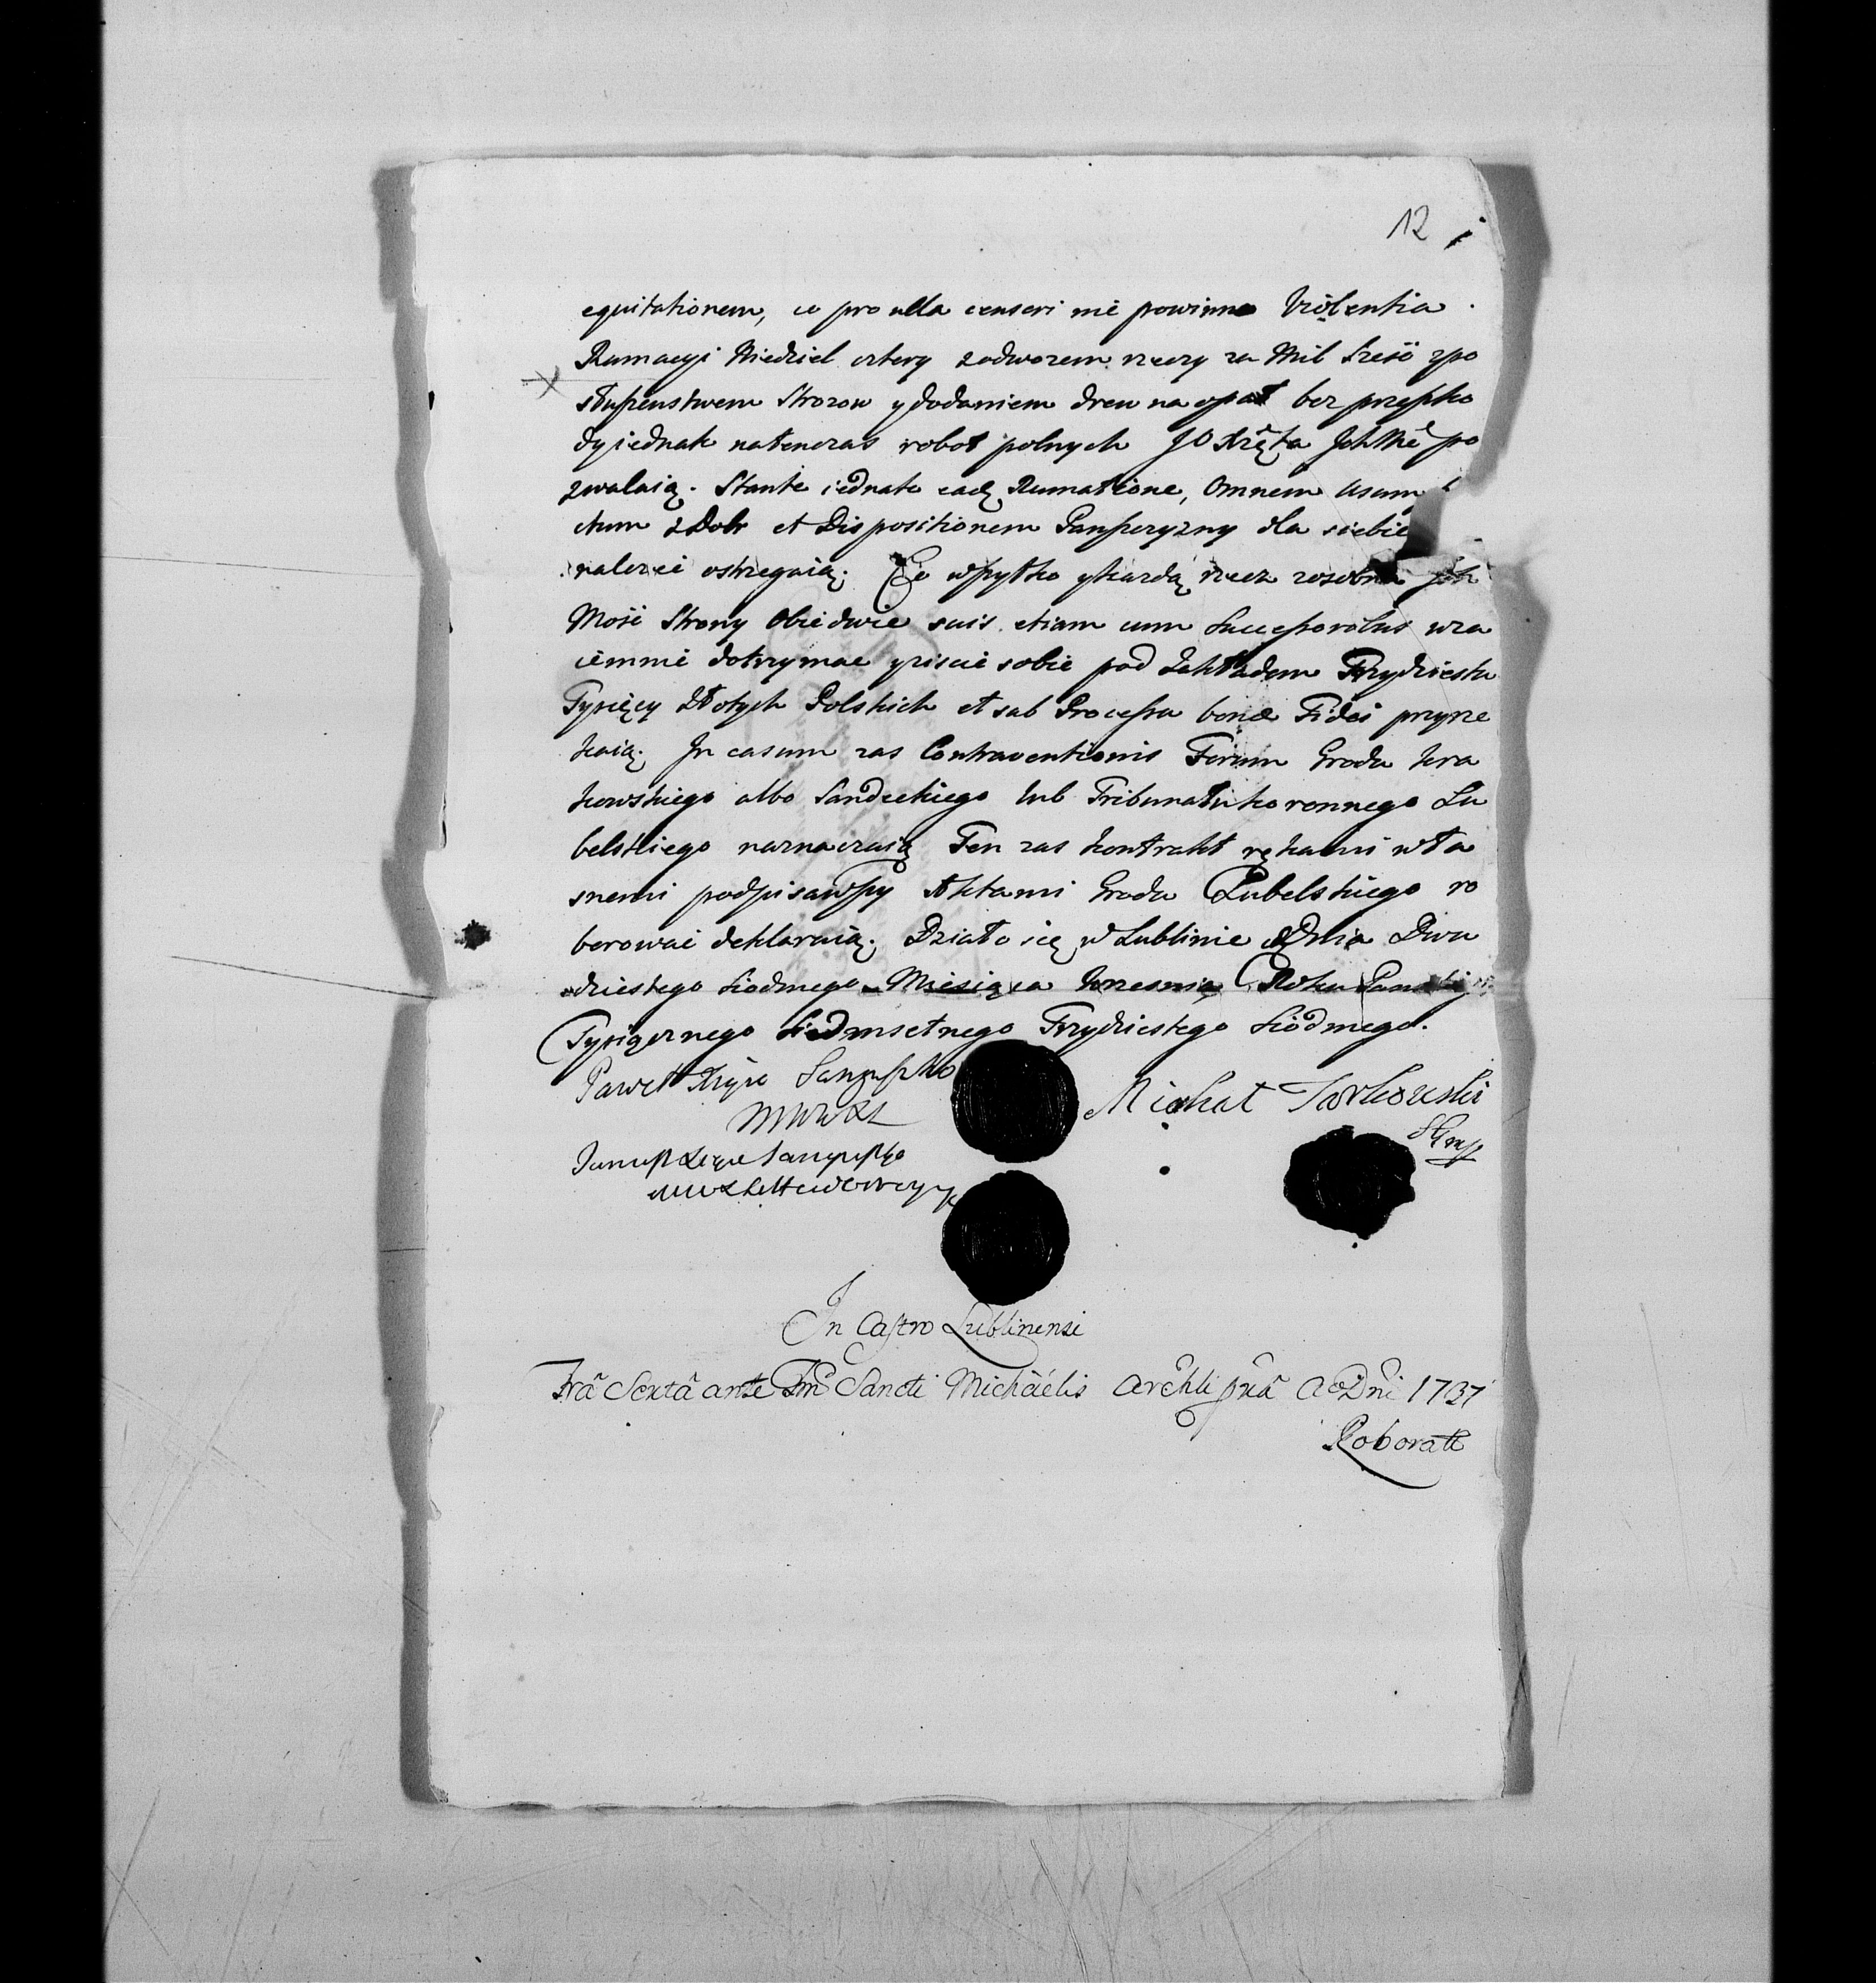 12
equitationem, co pro ulla censeri nie powinno Violentia.
Rumacyi Niedziel cztery zedworem rzeczy za Mil sześć zpo
słuszenstwem Strozow y dodaniem drew na opał bez przeszko
dy iednak natenczas robot polnych JO Xręta Ich Mć po
zwalaią. Stante iednak eadē Rumatione, Omnem Usum
ctum z Dobr et Dispositionem Panszczyzny dla siebie
nalezeć ostrzegaią. Co wszytko y kazdą rzecz zosobna Ich
Mość Strony Obiedwie suis etiam cum Successoribus wza
iemnie dotrzymac y ziscić sobie pod Zakładem Trzydziestu
Tysięcy Złotych Polskich et sub Processu bonæ Fidei przyrze
kaią. In casum zas Contraventionis Forum Grodu Kra
kowskiego albo Sandeckiego lub Trybunału koronnego Lu
belskiego naznaczaią Ten zas kontrakt rękami wła
snemi podpisawszy Aktami Grodu Lubelskiego ro
borować deklaruią. Działo się w Lublinie Dnia Dwu
dziestego Siodmego Miesiąca Wrzesnia Roku Panski
Tysiącznego Siedmsetnego Trzydziestego Siodmego.
Paweł Xsże Sanguszko
MWWXL
Michał Tarkowski
Janusz Xiąze Sanguszko
In Castro Lublinensi
Frā Sextā ante Fm̄ Sancti Michäelis Archli pxā Ao Dni 1737
Roborat